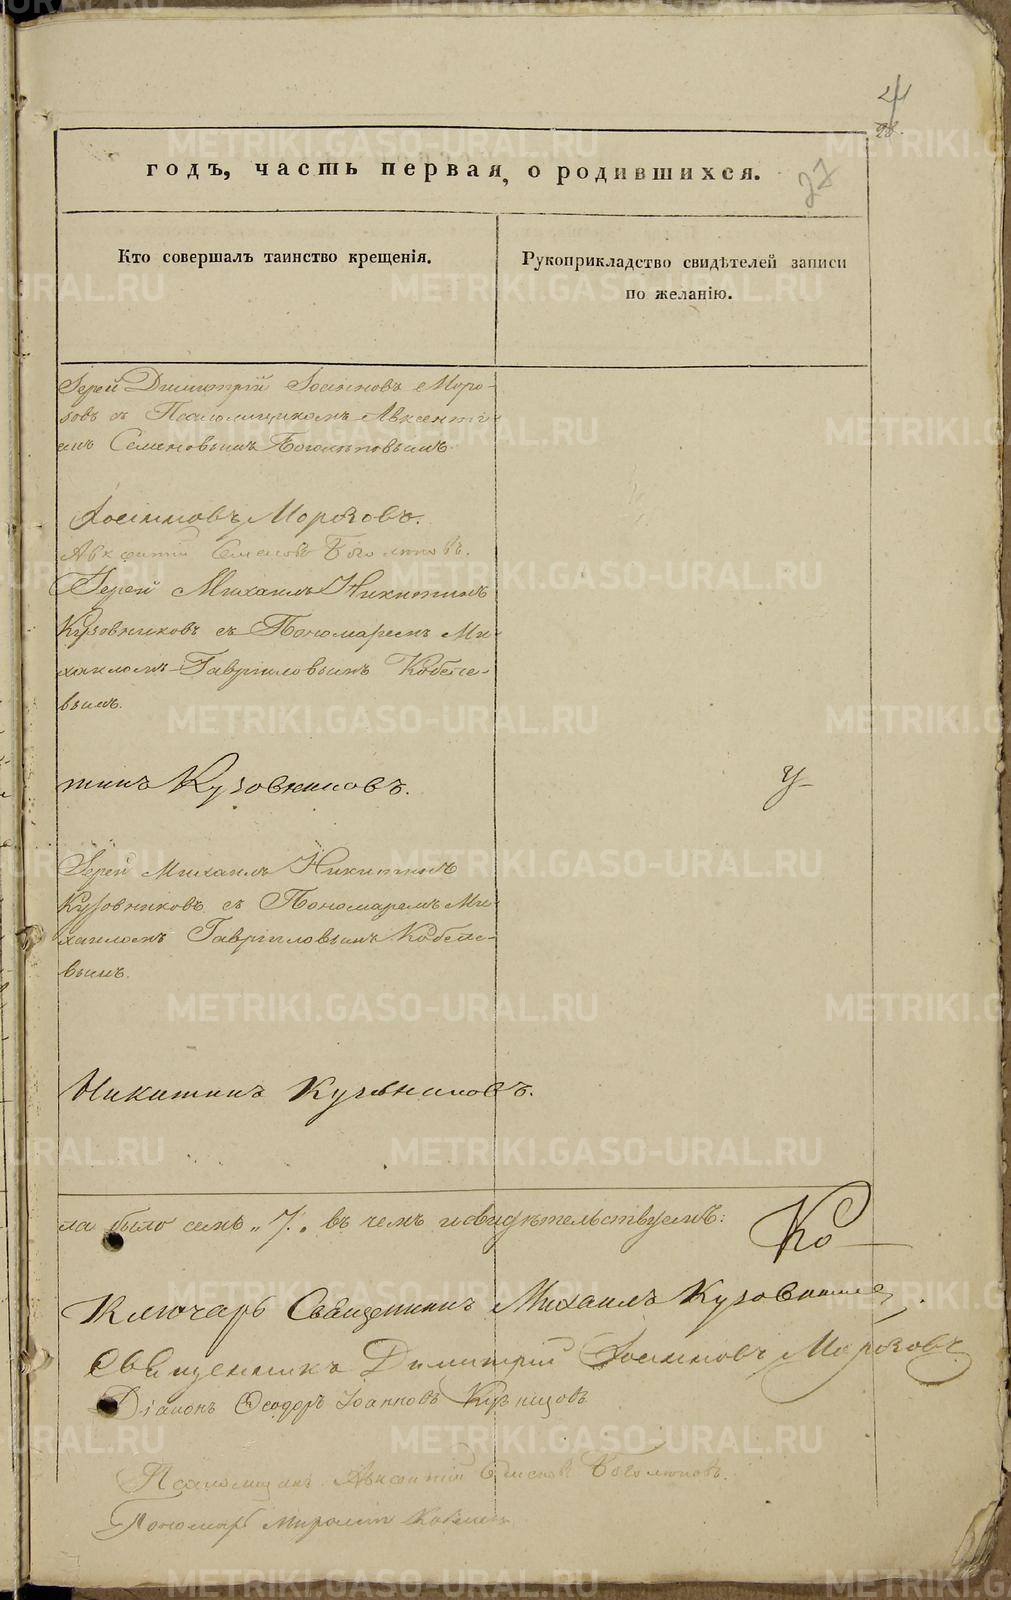 27
годъ, часть первая, о родившихся.
Кто совершалъ таинство крещенія.
Рукоприкладство свидѣтелей записи
по желанію.
Іерей Димитрій Іоанновъ Моро-
зовъ съ Псаломщикомъ Авксенті-
емъ Семеновымъ Боголюповымъ.
Іоанновъ Морозовъ.
Авксентій Семеновъ Боголюповъ.
Іерей Михаилъ Никитинъ
Кузовниковъ съ Пономаремъ Ми-
хаиломъ Гавріиловымъ Кобеле-
вымъ.
тинъ Кузовниковъ.
Іерей Михаилъ Никитинъ
Кузовниковъ съ Пономаремъ Ми-
хаиломъ Гавріиловымъ Кобеле-
вымъ.
Никитинъ Кузовниковъ.
ла было семь „7.„ въ чемъ и свидѣтельствуемъ:
Ко
Ключарь Священникъ Михаилъ Кузовников
Священникъ Димитрій Іоанновъ Морозовъ.
Діаконъ Ѳеодоръ Іоанновъ Кузнецовъ
Псаломщикъ Авксентій Семеновъ Боголюповъ.
Пономарь Кобелев
METRIKI.GASO-URAL.RU